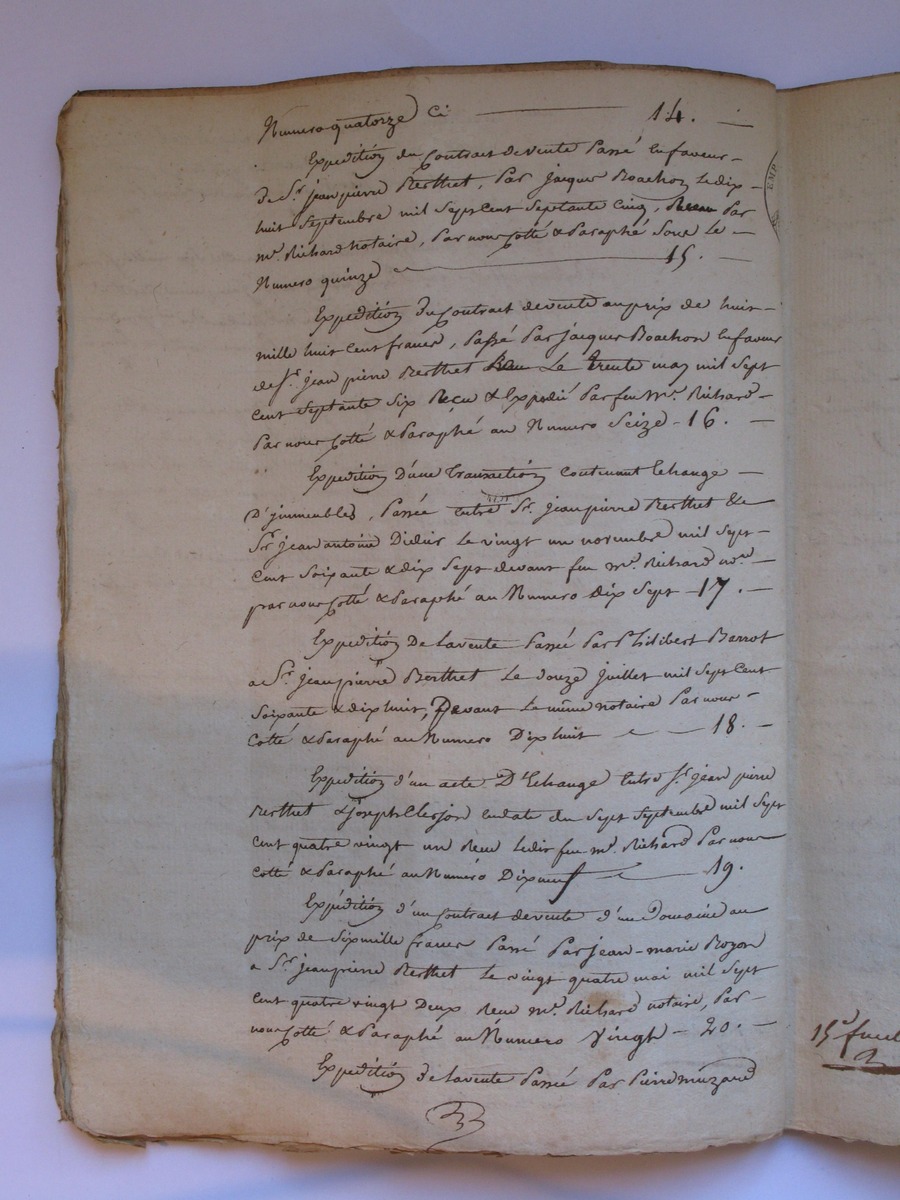 Numero quatorze Ci — 14. —
Expedition du Contract de vente Passé en faveur —
De Sr. jean pierre Berthet, Par jacques Boachon le dix —
huit Septembre mil Sept Cent Septante Cinq, Receu Par
me. Richard notaire, Par nous Cotté & Paraphé Sous Le —
Numero quinze — 15. —
Expedition du Contract de vente au prix de huit —
mille huit Cent francs, Passé Par jacques Boachon en faveur
de Sr. jean pierre Berthet Le trente may mil Sept
Cent Septante Six Reçu & Expedié Par feu Me. Richard —
Par nous Cotté & Paraphé au Numero Seize - 16. —
Expedition D'une transaction Contenant Echange —
D'jmmeubles, Passée Entre Sr. jean pierre Berthet &
Sr. jean antoine Didier Le vingt un novembre mil Sept —
Cent Soixante & dix Sept devant feu me. Richard nore. —
par nous Cotté & Paraphé au Numero dix Sept - 17. —
Expedition De La vente Passée Par Philibert Barrot
a Sr. jean pierre Berthet Le douze juillet mil Sept Cent
Soixante & dix huit, Devant Le même notaire Par nous —
Cotté & Paraphé au Numero Dix huit — 18. —
Expedition d'un acte D'Echange Entre Sr. jean pierre
Berthet & joseph Clerjon en date du Sept Septembre mil Sept
Cent quatre vingt un Receu Ledit feu me. Richard Par nous
Cotté & Paraphé au Numéro Dix neuf — 19.
Expédition d'un Contract de vente d'un Domaine au
prix de Six mille francs Passé Par jean-marie Rozon
a Sr. jean pierre Berthet Le vingt quatre mai mil Sept
Cent quatre vingt Deux Receu me. Richard notaire, Par —
nous Cotté & Paraphé au Numero Vingt - 20. —
Expedition de La vente Passée Par Pierre muzard
15e. feuil